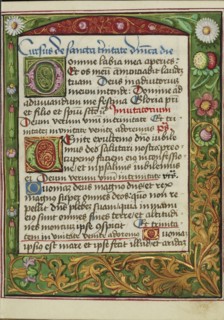 Cursus de sancta trinitate dnica die
Domine labia mea aperies:
Et os meū annunciabit laudē
tuam Deus in adiutorium
meum intende: Domine ad
adiuuandum me festina Gloria pri
et filio et spūi Inuitatorium
Deum verum vnū in trinitate Et tri
nitatē in vnitate venite adoremus ps
Venite exultemus dno iubile
mus deo salutari nostro preo
cupemus faciem eius in confessio
ne: et in psalmis iubilemus
ei Deum verum vnū in trinitate vrs
Quoniā deus magnus dns et rex
magnus super omnes deos: quoniā non re
pellit dns plebem suam: quia in manu
eius sunt omnes fines terre: et altitudi
nes montium ipse conspicit Et trinita
tem in vnitate venite adoremus Quoniā
ipsius est mare et ipse fecit illud: et aridam